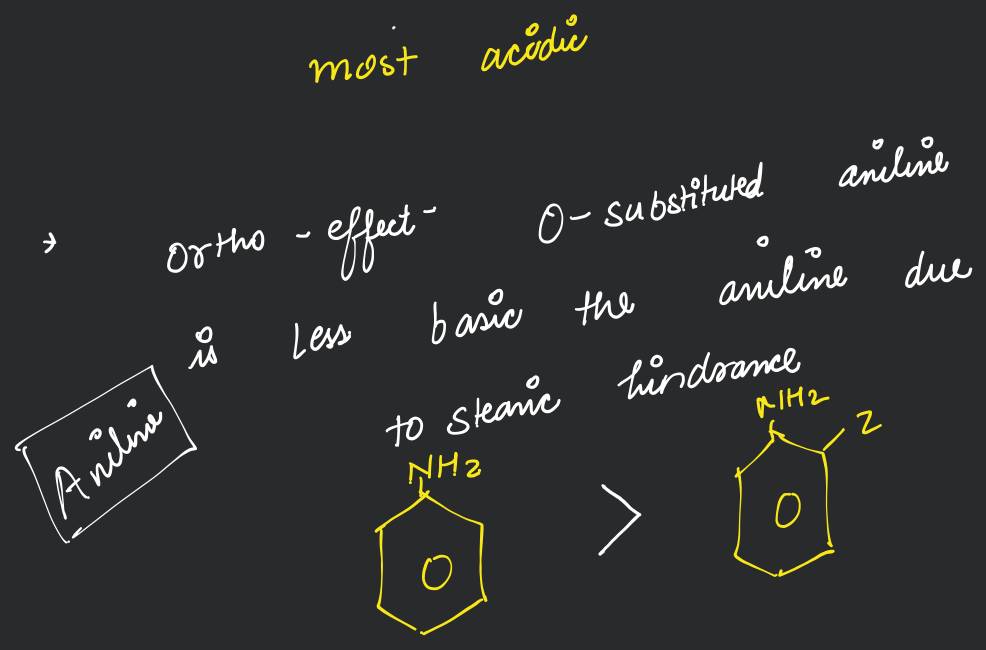 most acidic
→ Ortho - effect - O - substituted aniline
is less basic the aniline due
to stearic hindrance
Aniline
NH2 > NH2 Z